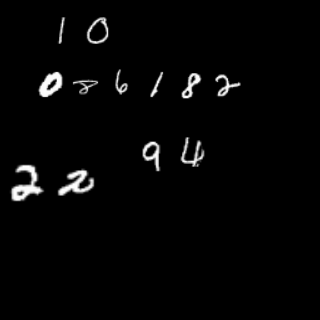 10
086182
94
22